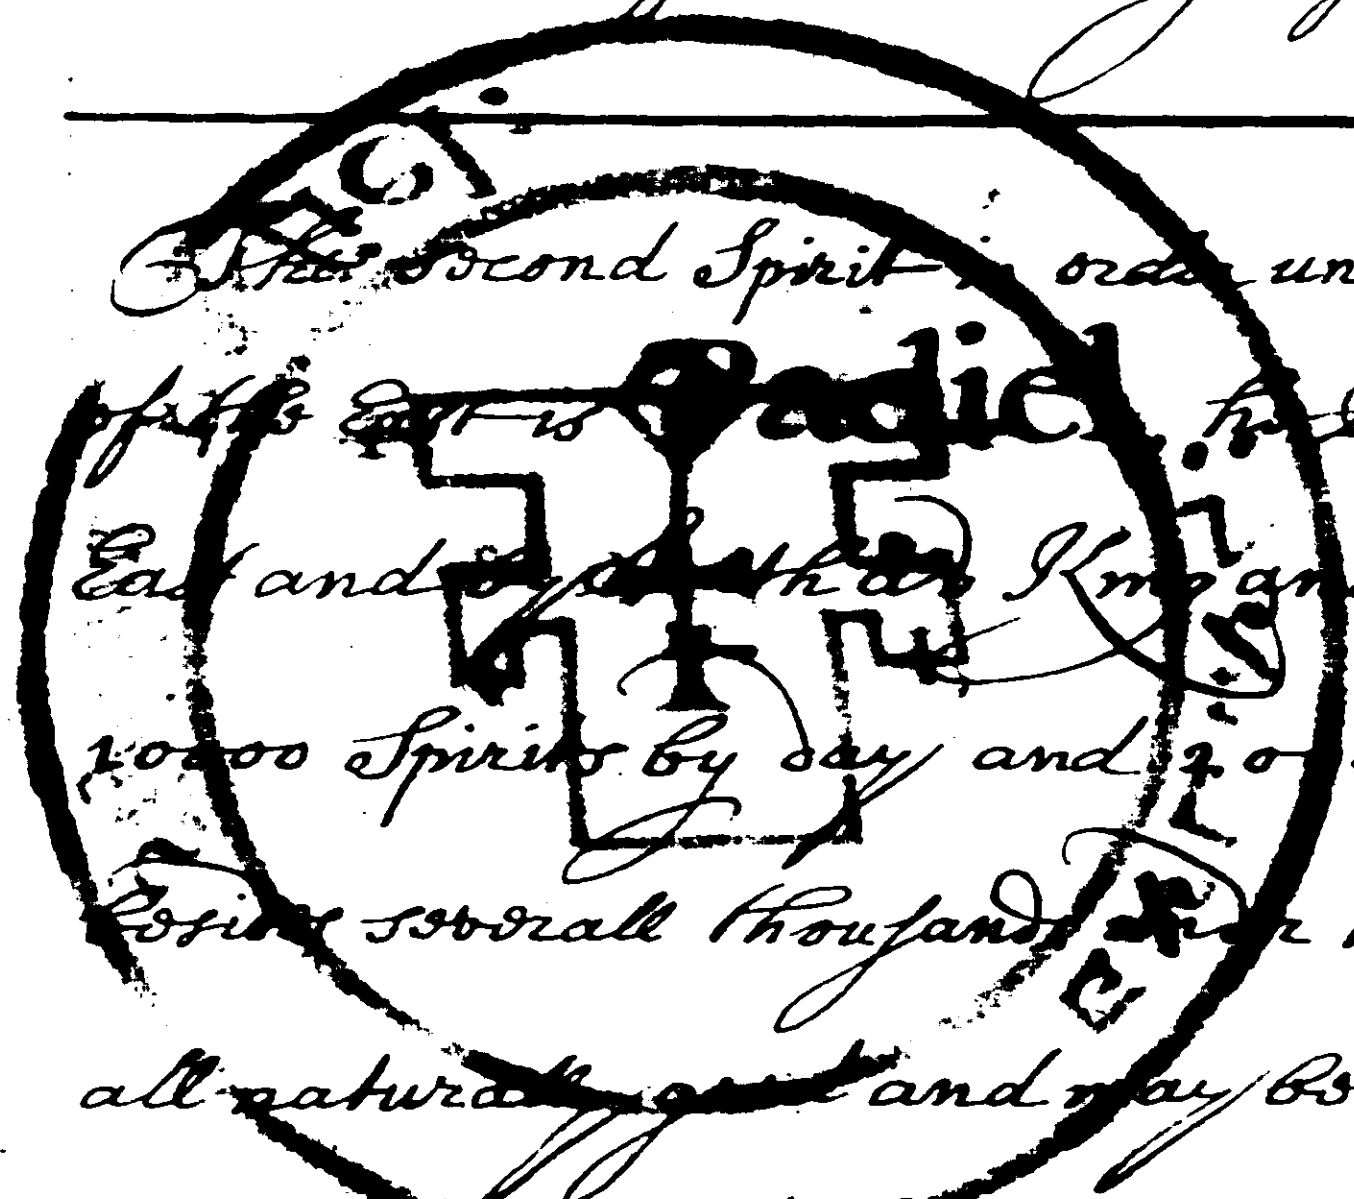 The second Spirit in order un
of the East is Padiel, he
East and by South as King an
10000 Spirits by day and 20
besides severall thousands
all naturally good and may be